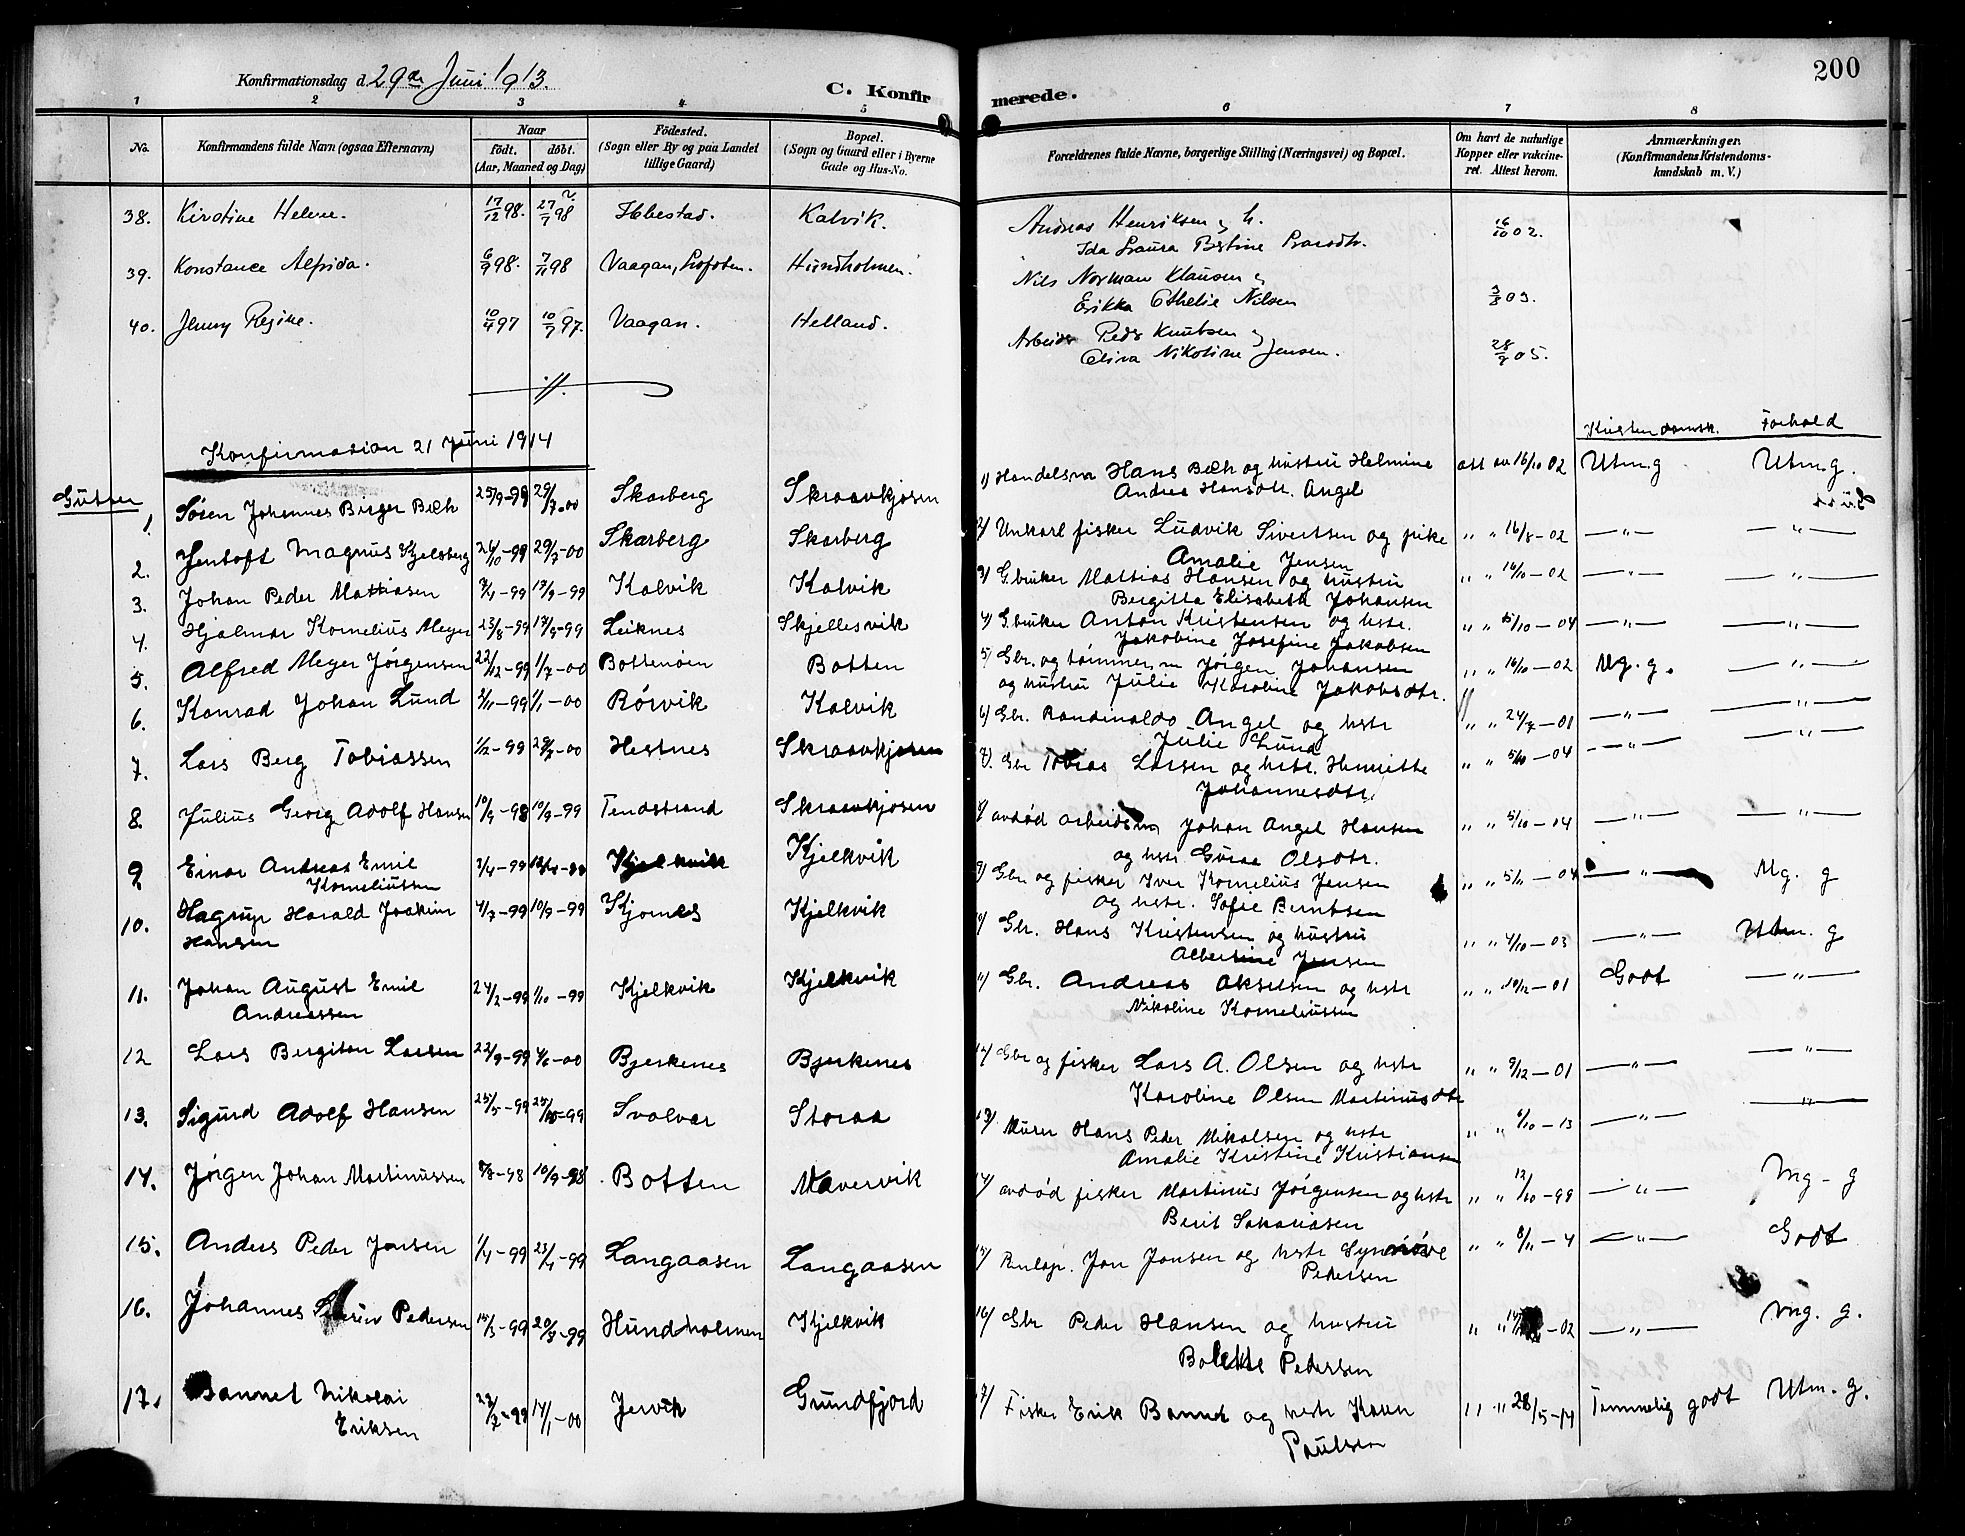 200
Konfirmationsdag d. 29de Juni 1913.
C. Konfirmerede.
1 2 3 4 5 6 7 8
No. Konfirmandens fulde Navn (ogsaa Efternavn)
Naar födt. döbt. (Aar, Maaned og Dag)
Födested. (Sogn eller By og paa Landet tillige Gaard)
Bopæl. (Sogn og Gaard eller i Byerne Gade og Hus-No.
Forældrenes fulde Navne, borgerlige Stilling (Næringsvei) og Bopæl.
Om havt de naturlige Kopper eller vakcineret. Attest herom.
Anmærkninger. (Konfirmandens Kristendomskundskab m. V.)
38. Kirstine Helene. 17/12 98. 27/7 98 ? Ibbestad. Kalvik. Andreas Henriksen & h. 16/10 02.
Ida Laura Bertine
39. Konstance Alfida. 6/9 98. 7/11 98 Vaagan, Lofoten. Hundholmen. Nils Norman Klausen &
Erikka Othelie Nilsen 3/8 03.
40. Jenny Regine. 10/4 97 10/7 97. Vaagan. Helland. Arbeider Peder Knutsen &
Oliva Nikoline Jensen. 28/7 05.
Konfirmasion 21 Juni 1914
Kristendomsk. Forhold
Gutter
1. Søren Johannes Birger Bech 25/9-99 29/7-00 Skarberg Skraavkjosen 1/ Handelsm Hans Bech og hustru Helmine att av 16/10 02 Utm. g Utm. g.
Andrea Hansdtr. Angel
2. Jentoft Magnus Kjelsberg 26/10-99 29/7-00 Skarberg Skarberg 2/ Unkarl fisker Ludvik Sivertsen og pike " " 16/8-02 —"— —"—
Amalie Jensen
3. Johan Peder Mattiasen 7/1-99 17/9-99 Kalvik Kalvik 3/ G.bruker Mattias Hansen og hustru " " 16/10-02 —"— —"—
Bergitta Elisabeth Johansen
4. Hjalmar Kornelius Meyer 23/8-99 17/9-99 Leiknes Skjellesvik 4/ G.bruker Anton Kristensen og hstr. " " 15/10-04 —"— —"—
Jakobine Josefine Jakobsen
5. Alfred Meyer Jørgensen 22/12-99 1/7-00 Bottenøen Botten 5/ Gbr. og tømmerm Jørgen Johansen " " 16/10-02 Mg. g. —"—
og hustru Julie Karoline Jakobsdtr.
6. Konrad Johan Lund 2/11-99 1/1-00 Rörvik Kalvik 6/ Gbr. Randinaldo Angel og hstr " " 24/7-01 —"— —"—
Julie Lund
7. Lars Berg Tobiassen 1/12-99 29/7-00 Hestnes Skraavkjosen 7/. Gbr Tobias Larsen og hstr. Henriette " " 5/10-04 —"— —"—
Johannesdtr.
8. Julius Georg Adolf Hansen 10/9-98 10/9-99 Tendstrand Skraavkjosen 8/ avdød arbeidsm Johan Angel Hansen " " 5/10-04 —"— —"—
og hstr. Guroe Olsdtr.
9 Einar Andreas Emil 3/4-99 Kjelkvik Kjelkvik 9/ Gbr og fisker Iver Kornelius Jensen " " 5/11-04 —"— Mg. g
Korneliussen og hstr. Sofie Berntsen
10. Hagrup Harald Joakim 4/7-99 10/9-99 Kjornes Kjelkvik 10/ Gbr. Hans Kristensen og hustru " " 4/10-03 —"— Utm. g
Hansen Albertine Jensen
11. Johan August Emil 24/2-99 1/10-99 Kjelkvik Kjelkvik 11/ Gbr. Andreas Akselsen og hstr " " 10/12-01 Godt —"—
Andreassen Nikoline Korneliussen
12 Lars Bergiton Larsen 22/9-99 4/6-00 Bjerkenes Bjerkenes 12/ Gbr og fisker Lars A. Olsen og hstr " " 9/12-01 —"— —"—
Karoline Olsen Martinusdtr
13. Sigurd Adolf Hansen 25/5-99 25/10-99 Svolvær Storaa 13/ Murer Hans Peder Nikolsen og hstr " " 6/10-13 —"— —"—
Amalie Kristine Kristiansen
14. Jørgen Johan Martinussen 8/7-98 10/9-98 Botten Mavervik 14/ avdød fisker Martinus Jörgensen og hstr " " 12/10-99 —"— Mg-g
Berit Sakariasen
15. Anders Peder Jonsen 1/4-99 23/4-99 Langaasen Langaasen 15/ Jon Jonsen og hstr Synnöve " " 8/11-4 —"— Godt
Pedersen
16. Johannes Pedersen 15/3-99 20/8-99 Hundholmen Kjelkvik 16/ Gbr Peder Hansen og hustru " " -02 —"— mg. g.
Bolette Pedersen
17. Nikolai 22/7-99 14/1-00 Jervik Grundfjord 17/ Fisker Erik og hstr Karen " " 28/5-14 Temmelig godt Utm. g.
Eriksen Paulsen